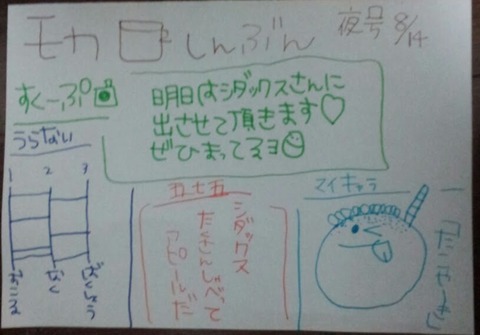 モカしんぶん
夜号 8/14
すくーぷ
明日はシダックスさんに
出させて頂きます♡
ぜひまってるヨ
うらない
1 2 3
おこる
なく
ばくしょう
五七五
シダックス
たくさんしゃべって
アピールだ
マイキャラ
「たこやき」